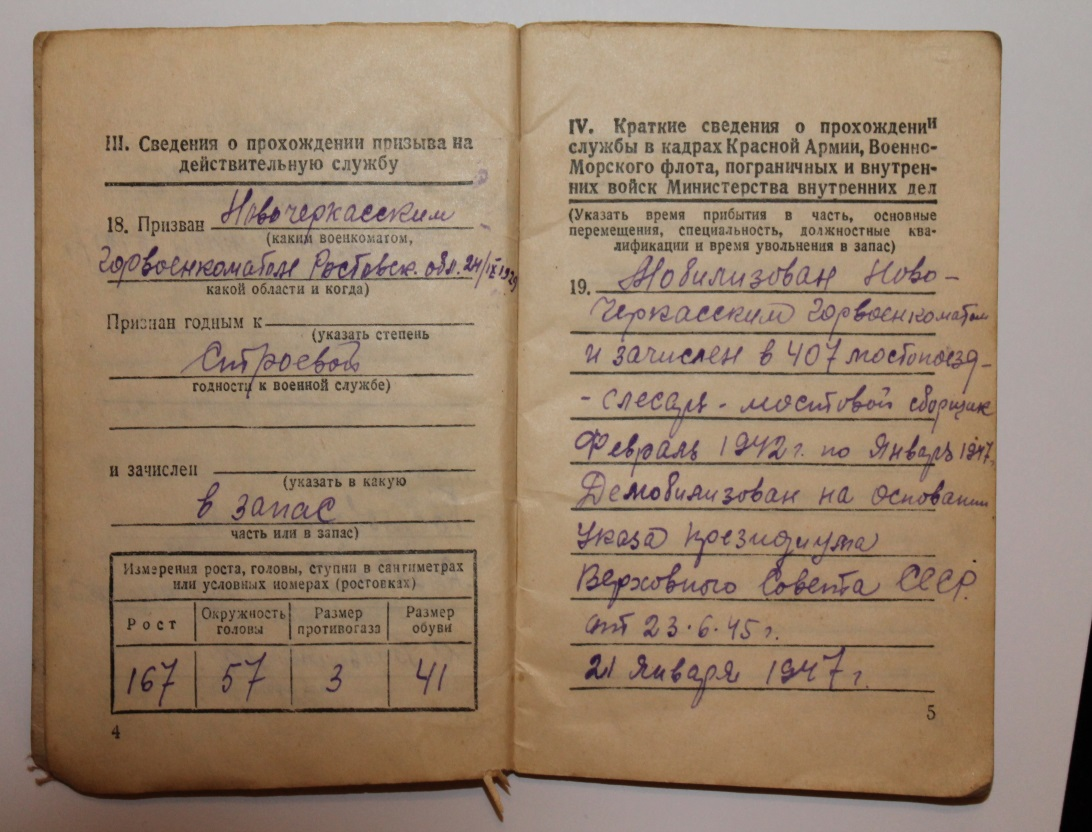 III. Сведения о прохождении призыва на
действительную службу
18. Призван Новочеркасским
(каким военкоматом,
Горвоенкоматом Ростовск. обл. 24/IX 1929
какой области и когда)
Признан годным к
(указать степень
Строевой
годности к военной службе)
и зачислен
(указать в какую
в запас
часть или в запас)
Измерения роста, головы, ступни в сантиметрах
или условных номерах (ростовках)
Рост Окружность головы Размер противогаза Размер обуви
167 57 3 41
4
IV. Краткие сведения о прохождении
службы в кадрах Красной Армии, Военно-
Морского флота, пограничных и внутрен-
них войск Министерства внутренних дел
(Указать время прибытия в часть, основные
перемещения, специальность, должностные ква-
лификации и время увольнения в запас)
19. Мобилизован Ново-
черкасским Горвоенкоматом
и зачислен в 407 мостопоезд-
- слесарь - мостовой сборщик
Февраль 1942 г. по Январь 1947 г.
Демобилизован на основании
Указа Президиума
Верховного Совета СССР.
от 23.6.45 г.
21 Января 1947 г.
5